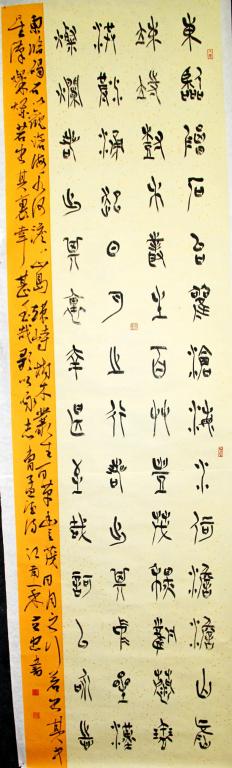 東臨碣石以觀滄海水何澹澹山島
竦峙樹木叢生百草豐茂秋風蕭瑟
洪波涌起日月之行若出其中星漢
燦爛若出其裏幸甚至哉歌以詠志
東臨碣石以觀滄海水何澹澹山島竦峙樹木叢生百草豐茂日月之行若出其中
星漢燦爛若出其裏幸甚至哉歌以詠志曹孟德詩江南書